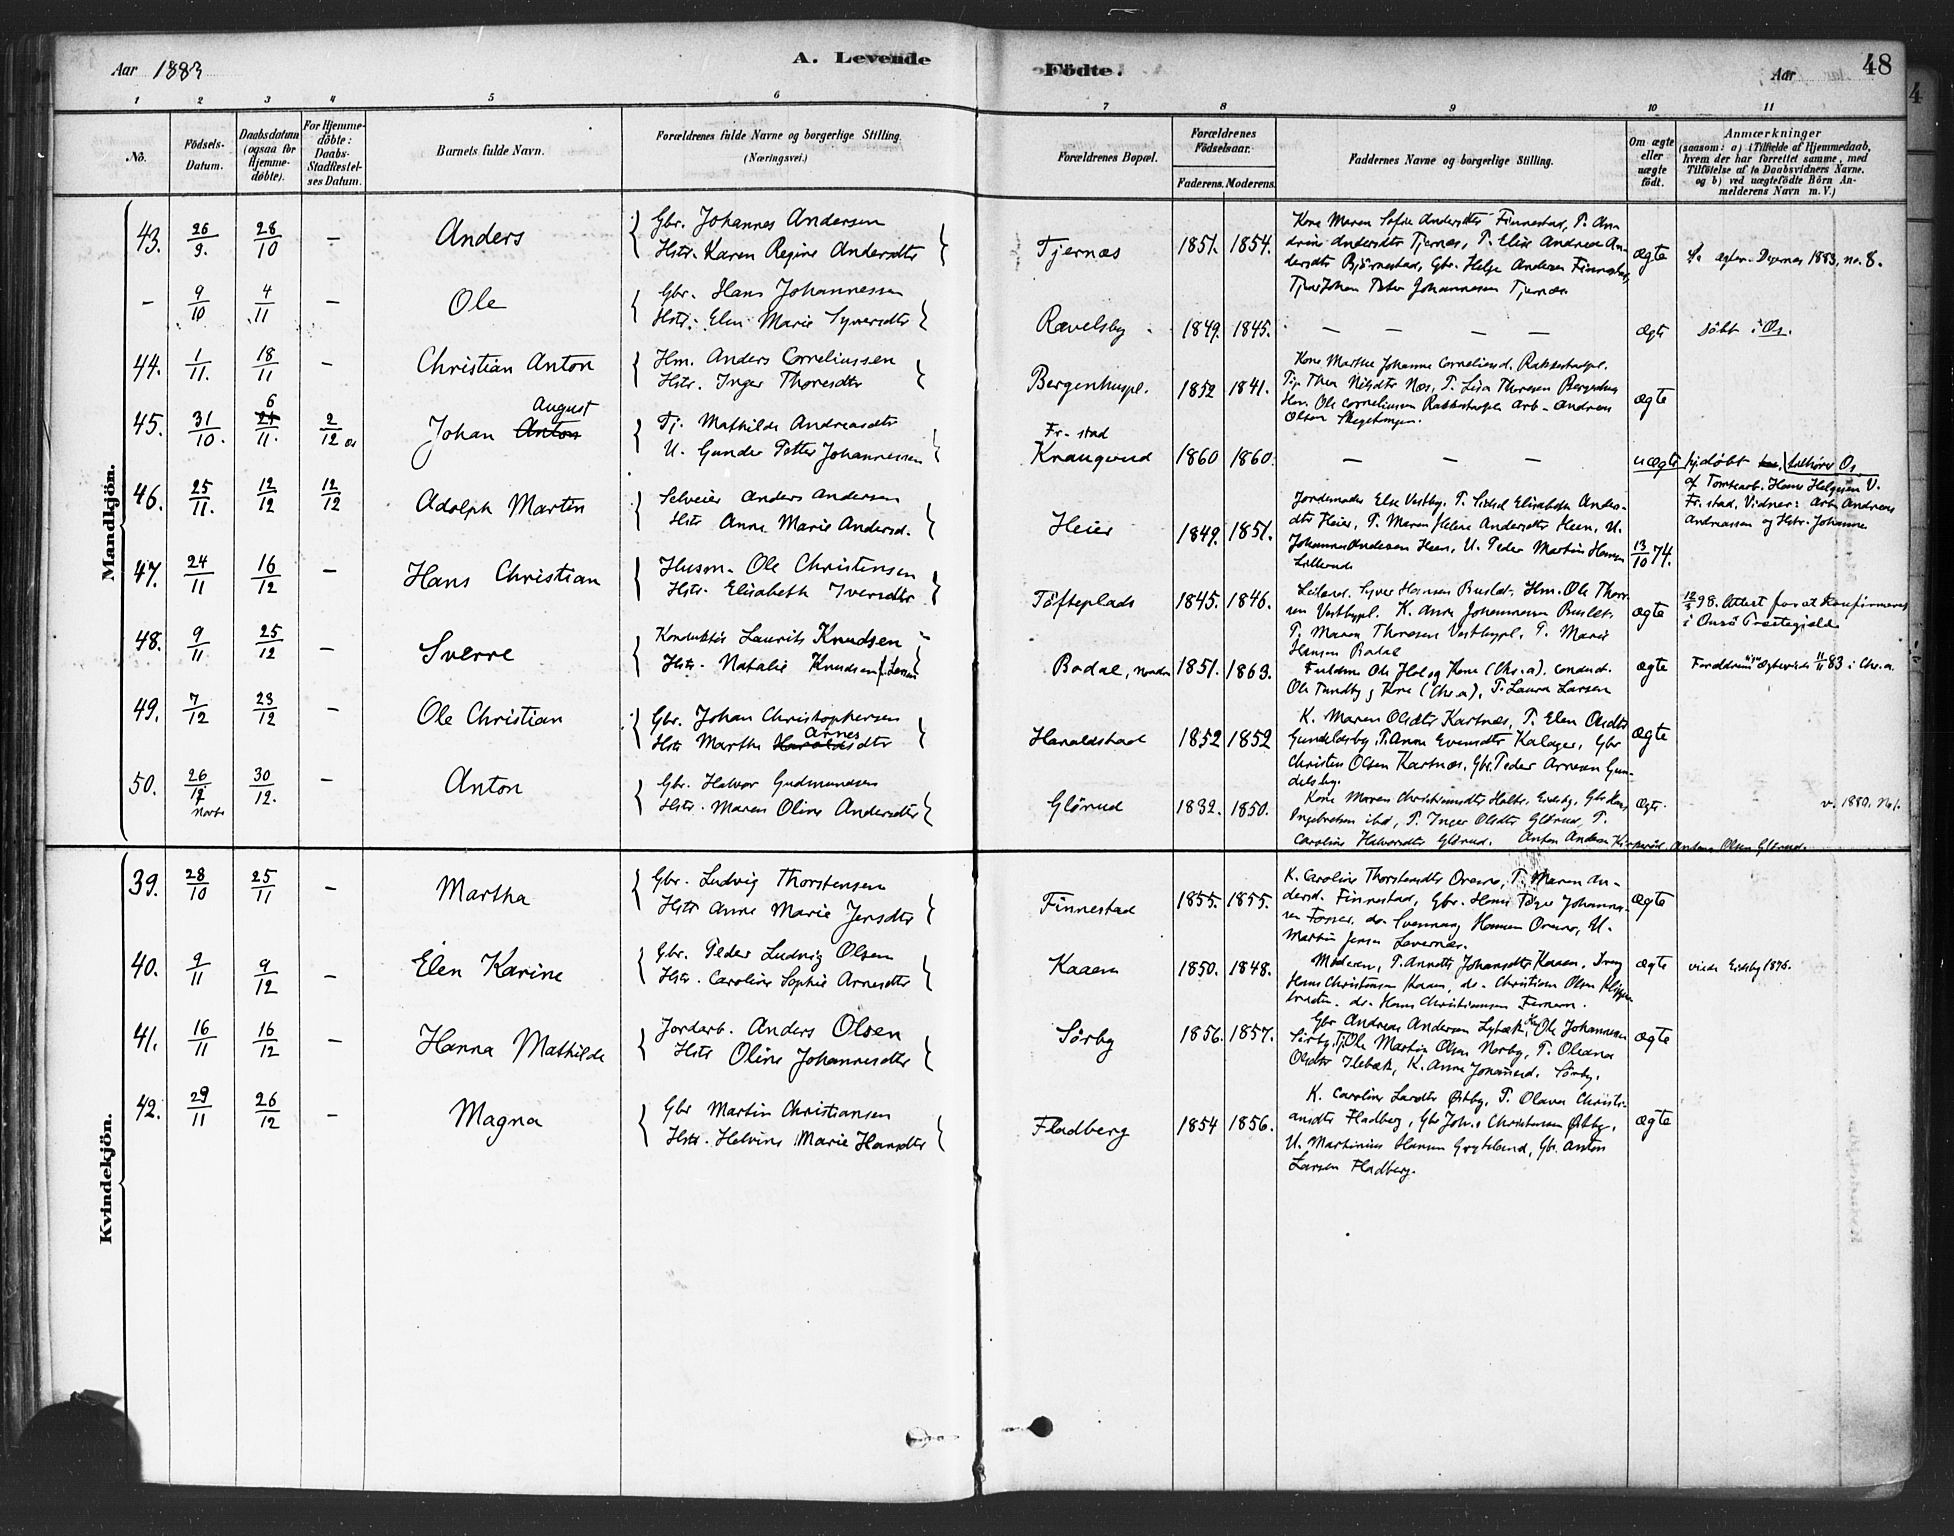 Aar 1883
A. Levende
Födte.
Aar
48
1 2 3 4 5 6 7 8 9 10 11
No.
Födsels-Datum.
Daabsdatum (ogsaa for Hjemme-döbte).
For Hjemme-döbte: Daabs-Stadfæstel-ses Datum.
Barnets fulde Navn.
Forældrenes fulde Navne og borgerlige Stilling. (Næringsvei.)
Forældrenes Bopæl.
Forældrenes Födselsaar.
Faderens. Moderens.
Faddernes Navne og borgerlige Stilling.
Om ægte eller uægte födt.
Anmærkninger
(saasom: a) i Tilfælde af Hjemmedaab, hvem der har forrettet samme, med Tilföielse af to Daabsvidners Navne. og b) ved uægtefödte Börn An-melderens Navn m. V.)
Mandkjön.
43. 26/9. 28/10 – Anders
Gbr. Johannes Andersen
Hstr. Karen Regine Andersdtr
Tjernæs 1851. 1854.
Kone Maren Sofie Andersdtr Finnestad, P. An-
drine Andersdtr Tjernæs, P. Elise Andrea An-
dersdtr Bjørnestad, Gbr. Helge Andersen Finnestad,
Johan Peter Johannesen Tjernæs
ægte
1883, no. 8.
– 9/10 4/11 – Ole
Gbr. Hans Johannessen
Hstr. Elen Marie Syversdtr
Rævelsby 1849. 1845. – – – –
ægte döbt i Os.
44. 1/11. 18/11 – Christian Anton
Hm. Anders Corneliussen
Hstr. Inger Thoresdtr
Bergenhuspl. 1852 1841.
Kone Marthe Johanne Corneliusd. Rakkestadpl.
P. Thea Nilsdtr Næs, P. Lisa Thoresen Bergenhus
Hm. Ole Corneliussen Rakkestadpl. Arb. Andreas
Olsen
ægte
45. 31/10. 6 24/11. 2/12 Os
August
Johan Anton
Tj. Mathilde Andreasdtr
U. Gunder Petter Johannessen
Fr.stad
Krangerud 1860 1860. – – –
uægte hjdöbt Os
af Tomtearb. Hans Helgesen V.
Fr.stad, Vidner: Arb. Andreas
Andreassen og Hstr. Johanne
46. 25/11. 12/12 12/12 Adolph Martin
Selveier Anders Andersen
Hstr Anne Marie Andersd.
Heier 1849. 1851.
Jordemoder Else Vestby, P. Elisabeth Anders-
dtr Heier, P. Maren Helene Andersdtr Heen, U.
Johannes Andersen Heen, U. Peder Martin Hansen
13/10 74.
47. 24/11 16/12 – Hans Christian
Husm. Ole Christensen
Hstr. Elisabeth Iversdtr
Töfteplads 1845. 1846.
Syver Hansen Buslet, Hm. Ole Thor-
sen Vestbypl. K. Anne Johannesen Buslet,
P. Maren Thoresen Vestbypl, P. Marie
Hansen Bodal
ægte
12/5 98. Attest for at konfirmeres
i Onsö Præstegjeld
48. 9/11 25/12 – Sverre
Konduktör Laurits Knudsen
Hstr. Natalie Knudsen f. Larsen
Bodal, nordre 1851. 1863.
Fuldm. Ole Hol og Kone (Chr.a). conduct.
Ole Tundby og Kone (Chr.a), P. Laura Larsen
ægte
Forældrene Ægteviede 11/11 83 i Chr.a.
49. 7/12 23/12 – Ole Christian
Gbr. Johan Christophersen
Arnes
Hstr Marthe Haraldsdtr
Haraldstad 1852 1852
K. Maren Olsdtr Kartnæs, P. Elen Olsdtr
Gundelsby, P. Anne Evensdtr Kalager, Gbr
Christen Olsen Kartnæs, Gbr. Peder Arnesen Gun-
delsby.
ægte
50. 26/12 30/12. – Anton
Gbr. Halvor Gudmundsen
Hstr. Maren Oline Andersdtr
Glörud 1832. 1850.
Kone Maren Christiansdtr Eidsby, Gbr Hans
Ingebretsen ibid, P. Inger Olsdtr Glörud, P.
Caroline Halvorsdtr Glörud. Anton Andersen Anton Olsen Glörud.
Ægte. v. 1880. No 1.
Kvindekjön.
39. 28/10 25/11 – Martha
Gbr. Ludvig Thorstensen
Hstr Anne Marie Jensdtr
Finnestad 1855. 1855.
K. Caroline Thorstensdtr P. Maren An-
dersd. Finnestad, Gbr. Hans Johannes-
sen Fosser, do. Svennung Hansen U.
Martin Jensen Levernæs.
ægte
40. 9/11 9/12 – Elen Karine
Gbr. Peder Ludvig Olsen
Hstr. Caroline Sophie Arnesdtr
Kaaen 1850. 1848.
Moderen, P. Annette Johansdtr Kaaen,
Hans Christiansen Kaaen, do. Christian Olsen
do. Hans Christiansen
ægte viede Eidsby 1876.
41. 16/11 16/12 – Hanna Mathilde
Jordarb. Anders Olsen
Hstr Oline Johannesdtr
Sørby 1856. 1857.
Gbr Andreas Andersen Ole Johannesen
Sørby, Tj. Ole Martin Olsen Norby, P. Oleana
Olsdtr Ilebæk, K. Anne Johannesd. Sørby.
ægte
42. 29/11 26/12 – Magna
Gbr Martin Christiansen
Hstr. Helvine Marie Hansdtr
Fladberg 1854 1856.
K. Caroline Larsdtr Østby, P. Olava Christi-
ansdtr Fladberg, Gbr Johs Christensen Østby,
U. Martinius Hansen Gryteland, Gbr. Anton
Larsen Fladberg.
ægte